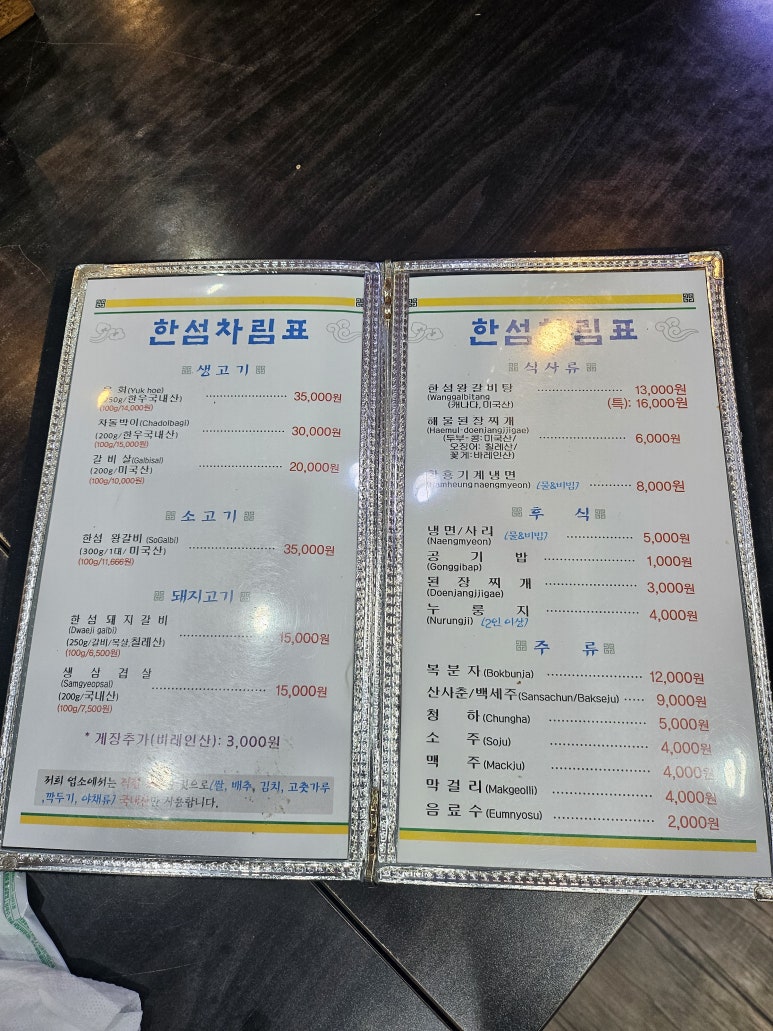 한섬차림표
생고기
회(Yuk hoe)
한우국내산) 35,000원
(100g/14,000원)
차돌박이(Chadolbagi)
(200g/한우국내산) 30,000원
(100g/15,000원)
갈비살(Galbisal)
(200g/미국산) 20,000원
(100g/10,000원)
소고기
한섬 왕갈비(SoGalbi)
(300g/1대/미국산) 35,000원
(100g/11,666원)
돼지고기
한섬돼지갈비
(Dwaeji galbi)
(250g/갈비/목살,칠레산) 15,000원
(100g/6,500원)
생삼겹살
(Samgyeopsal)
(200g/국내산) 15,000원
(100g/7,500원)
* 게장추가(바레인산): 3,000원
저희 업소에서는 (쌀, 배추, 김치, 고춧가루
,깍두기, 야채류) 국내산만 사용합니다.
한섬차림표
식사류
한섬왕갈비탕 13,000원
(Wanggalbitang
(캐나다,미국산) (특): 16,000원
해물된장찌개
(Haemul-doenjangjjigae)
(두부-콩:미국산/ 6,000원
오징어: 칠레산/
꽃게:바레인산)
함흥기계냉면
naengmyeon) (물&비빔) 8,000원
후식
냉면/사리 (물&비빔) 5,000원
(Naengmyeon)
공기밥 1,000원
(Gonggibap)
된장찌개 3,000원
(Doenjangjjigae)
누룽지 4,000원
(Nurungji) (2인 이상)
주류
복분자(Bokbunja) 12,000원
산사춘/백세주(Sansachun/Bakseju) 9,000원
청하(Chungha) 5,000원
소주(Soju) 4,000원
맥주(Mackju) 4,000원
막걸리(Makgeolli) 4,000원
음료수(Eumnyosu) 2,000원